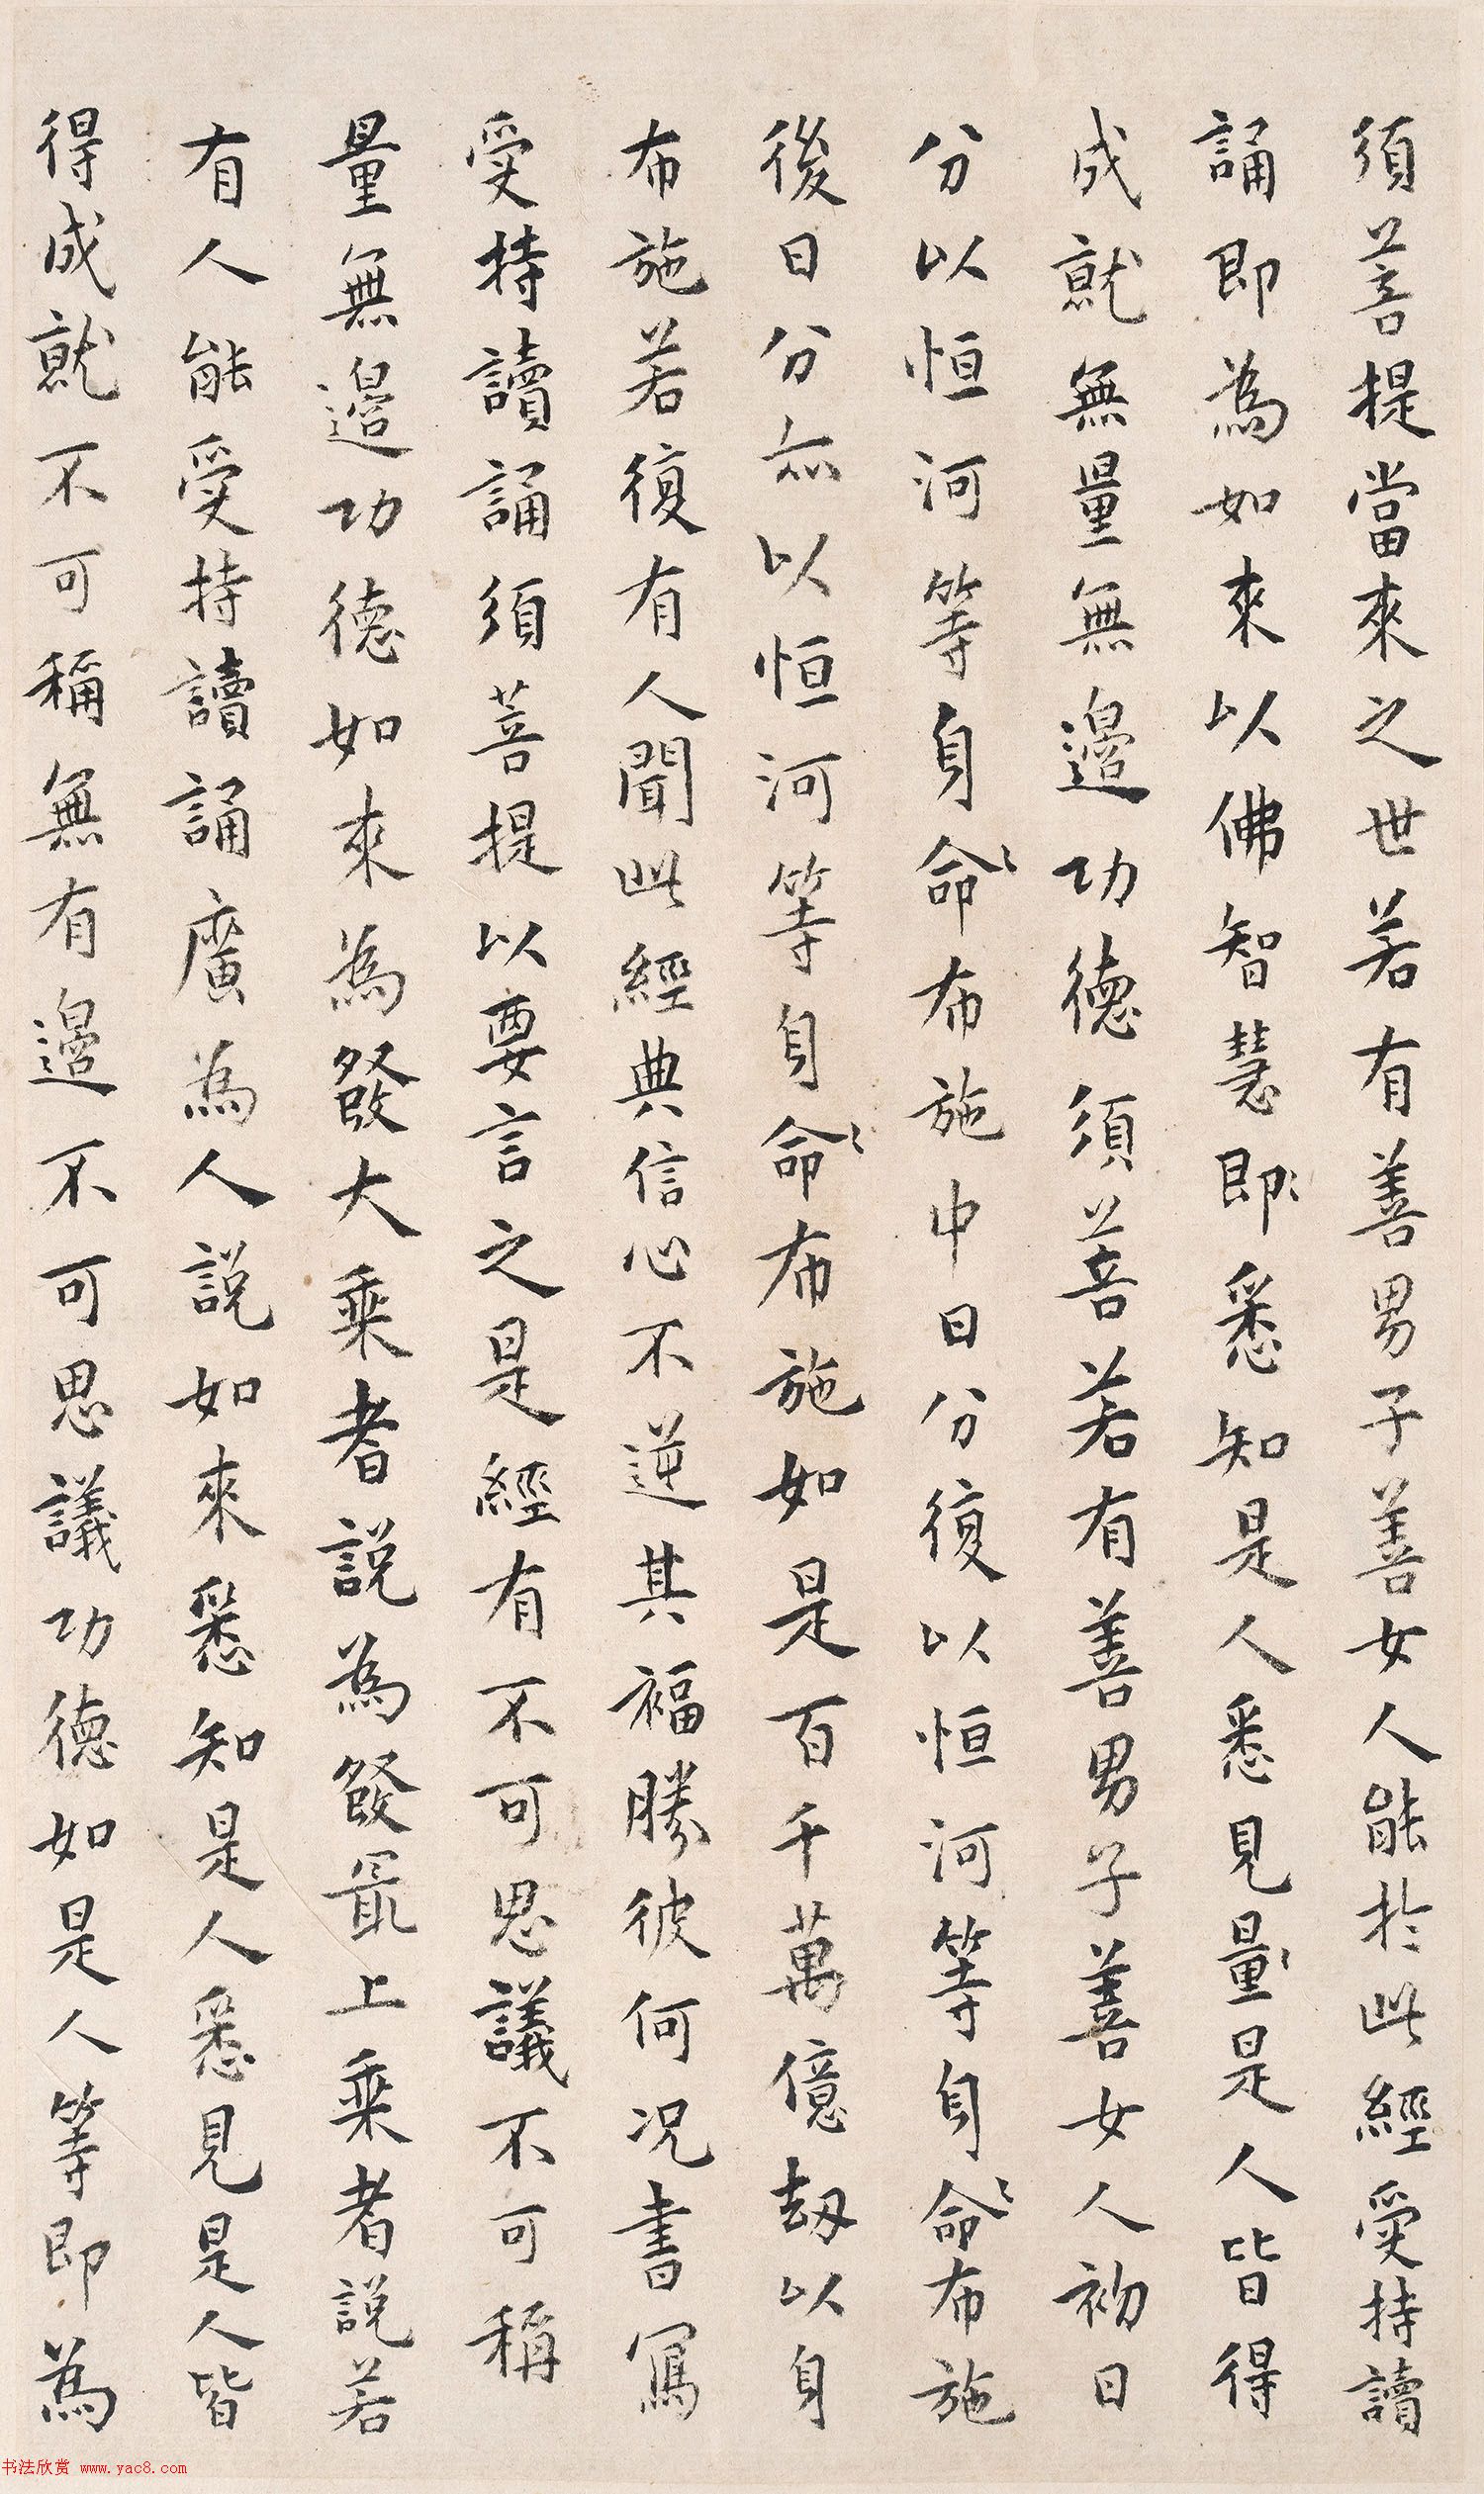 須菩提當來之世若有善男子善女人能於此經受持讀
誦即為如來以佛智慧即悉知是人悉見量是人皆得
成就無量無邊功德須菩若有善男子善女人初日
分以恒河等身命布施中日分復以恒河等身命布施
後日分亦以恒河等身命布施如是百千萬億劫以身
布施若復有人聞此經典信心不逆其福勝彼何况書寫
受持讀誦須菩提以要言之是經有不可思議不可稱
量無邊功德如來為發大乘者說為發最上乘者說若
有人能受持讀誦廣為人說如來悉知是人悉見是人皆
得成就不可稱無有邊不可思議功德如是人等即為
书法欣赏 www.yac8.com